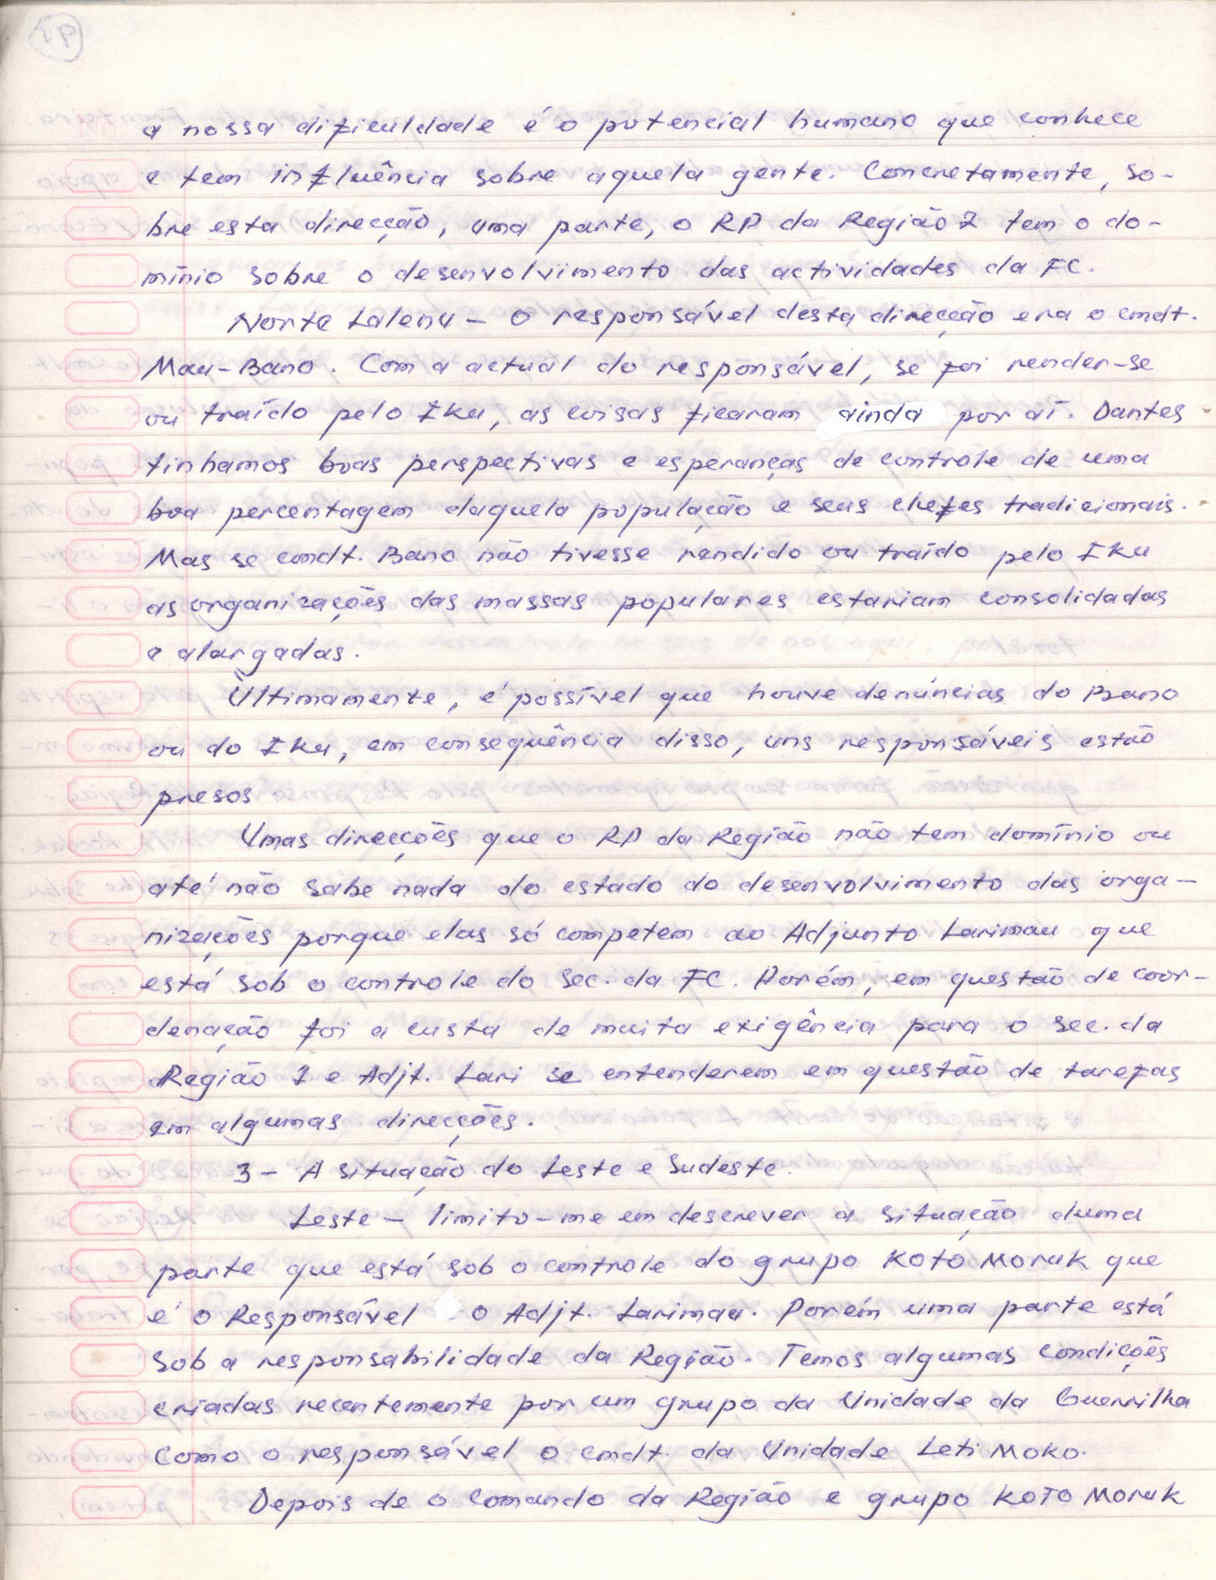 a nossa dificuldade é o potencial humano que conhece
e tem influência sobre aquela gente. Concretamente, so-
bre esta direcção, uma parte, o RP da Região 2 tem o do-
mínio sobre o desenvolvimento das actividades da FC.
Norte Laleна - O responsável desta direcção era o cmdt.
Mau-Bano. Com a actual do responsável, se foi render-se
ou traído pelo Iku, as coisas ficaram ainda por aí. Dantes
tinhamos boas perspectivas e esperanças de controle de uma
boa percentagem daquela população e seus chefes tradicionais.
Mas se comdt. Bano não tivesse rendido ou traído pelo Iku
as organizações das massas populares estariam consolidadas
e alargadas.
Ultimamente, é possível que houve denúncias do Bano
ou do Iku, em consequência disso, uns responsáveis estão
presos
Umas direcções que o RP da Região não tem domínio ou
até não sabe nada do estado do desenvolvimento das orga-
nizações porque elas só competem ao Adjunto Larimau que
está sob o controle do Sec. da FC. Porém, em questão de coor-
denação foi a custa de muita exigência para o sec. da
Região 2 e Adjt. Lari se entenderem em questão de tarefas
em algumas direcções.
3 - A situação do Leste e Sudeste.
Leste - limito-me em descrever a situação duma
parte que está sob o controle do grupo KOTO MORUK que
é o Responsável o Adjt. Larimau. Porém uma parte está
sob a responsabilidade da Região. Temos algumas condições
criadas recentemente por um grupo da Unidade da Guerrilha
Como o responsável o cmdt. da Unidade Leti Moko.
Depois de o Comando da Região e grupo KOTO MORUK